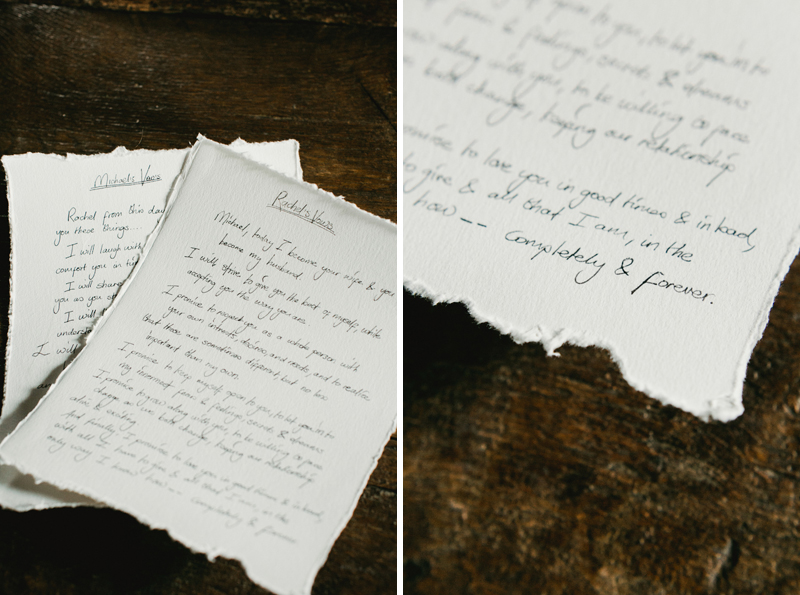 Michael's Vows
Rachel from this day
you these things....
I will laugh with
comfort you in
I will share
you as you
I will
I will
Rachel's Vows
Michael, today I become your wife & you
become my husband.
I will strive to give you the best of myself, while
accepting you the way you are.
I promise to respect you as a whole person with
your own interests, desires, and needs, and to realise
that these are sometimes different, but no less
important than my own.
I promise to keep myself open to you, to let you in to
my innermost fears & feelings, secrets & dreams
I promise to grow along with you, to be willing to face
change as we both change, keeping our relationship
alive & exciting
And finally, I promise to love you in good times & in bad,
with all I have to give & all that I am, in the
only way I know how -- completely & forever.
to you, to let you in to
fears & feelings, secrets & dreams
along with you, to be willing to face
both change, keeping our relationship
to love you in good times & in bad,
to give & all that I am, in the
how -- completely & forever.